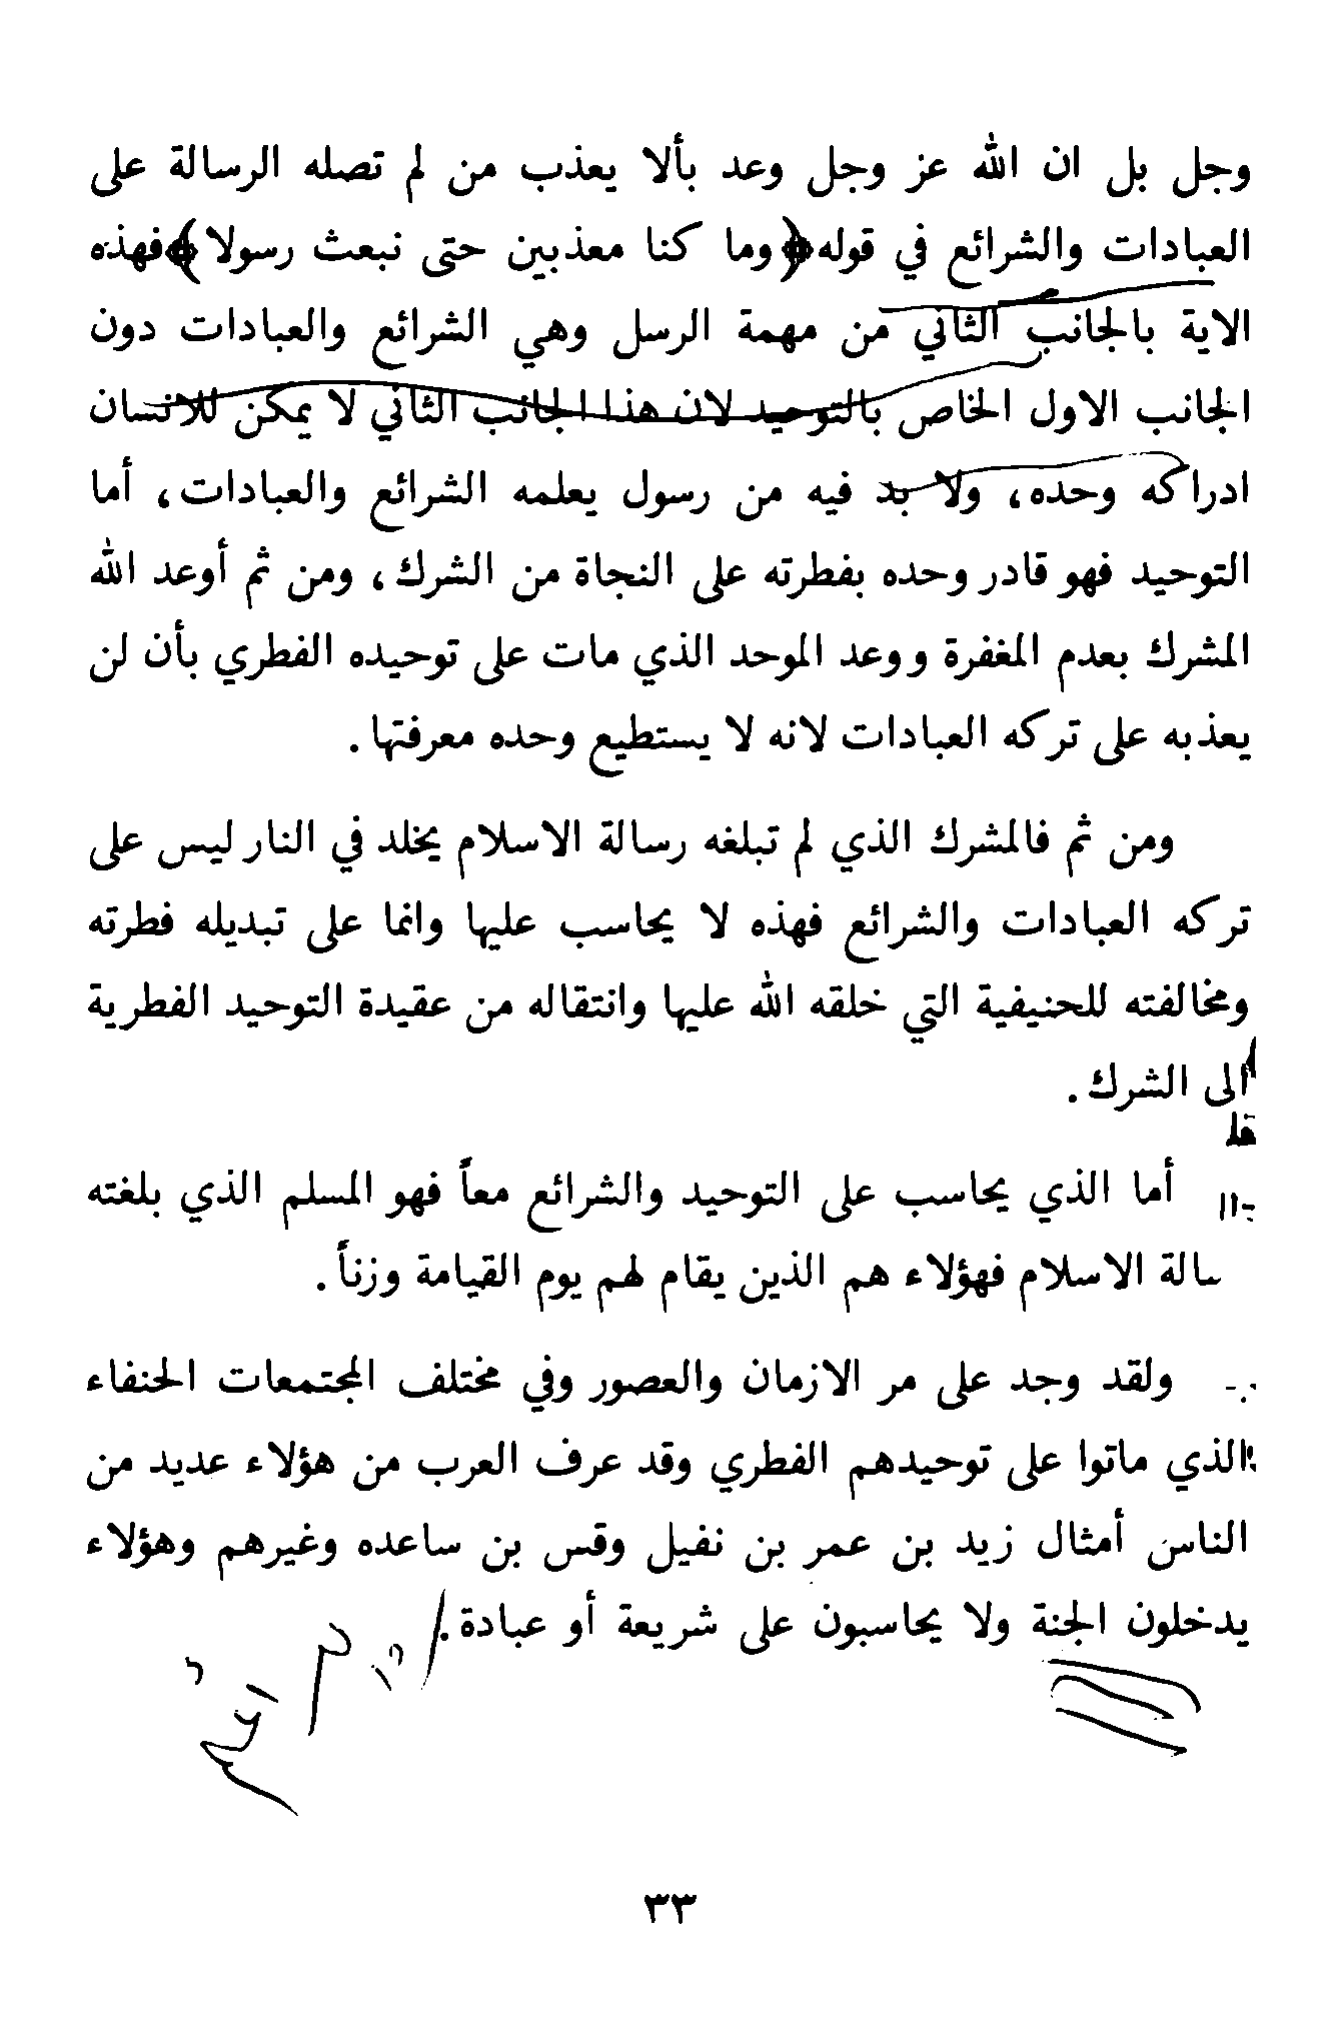 وجل بل ان الله عز وجل وعد بألا يعذب من لم تصله الرسالة على
العبادات والشرائع في قوله ﴿وما كنا معذبين حتى نبعث رسولا﴾ فهذه
الاية بالجانب الثاني من مهمة الرسل وهي الشرائع والعبادات دون
الجانب الاول الخاص بالتوحيد لان هذا الجانب الثاني لا يمكن للانسان
ادراكه وحده، ولا بد فيه من رسول يعلمه الشرائع والعبادات، أما
التوحيد فهو قادر وحده بفطرته على النجاة من الشرك، ومن ثم أوعد الله
المشرك بعدم المغفرة ووعد الموحد الذي مات على توحيده الفطري بأن لن
يعذبه على تركه العبادات لانه لا يستطيع وحده معرفتها.
ومن ثم فالمشرك الذي لم تبلغه رسالة الاسلام يخلد في النار ليس على
تركه العبادات والشرائع فهذه لا يحاسب عليها وانما على تبديله فطرته
ومخالفته للحنيفية التي خلقه الله عليها وانتقاله من عقيدة التوحيد الفطرية
الى الشرك.
أما الذي يحاسب على التوحيد والشرائع معاً فهو المسلم الذي بلغته
سالة الاسلام فهؤلاء هم الذين يقام لهم يوم القيامة وزناً.
ولقد وجد على مر الازمان والعصور وفي مختلف المجتمعات الحنفاء
الذي ماتوا على توحيدهم الفطري وقد عرف العرب من هؤلاء عديد من
الناس أمثال زيد بن عمر بن نفيل وقس بن ساعده وغيرهم وهؤلاء
يدخلون الجنة ولا يحاسبون على شريعة أو عبادة.
٣٣